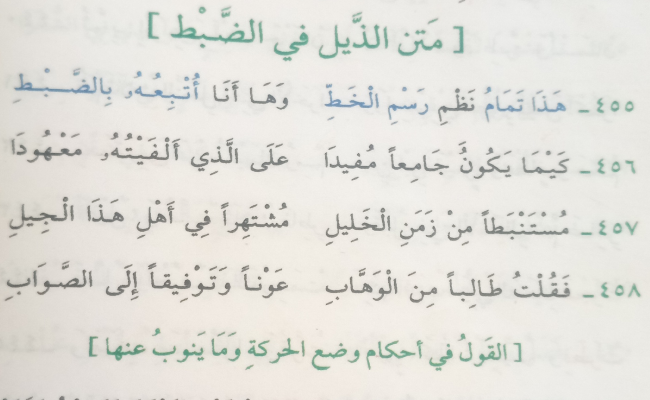 [ مَتن الذَّيل في الضَّبْط ]
٤٥٥ - هَذَا تَمَامُ نَظْمِ رَسْمِ الْخَطِّ وَهَا أَنَا أُتْبِعُهُ بِالضَّبْطِ
٤٥٦ - كَيْمَا يَكُونُ جَامِعاً مُفِيدَا عَلَى الَّذِي أَلْفَيْتُهُ مَعْهُودَا
٤٥٧ - مُسْتَنْبَطاً مِنْ زَمَنِ الْخَلِيلِ مُشْتَهِراً فِي أَهْلِ هَذَا الْجِيلِ
٤٥٨ - فَقُلْتُ طَالِباً مِنَ الْوَهَّابِ عَوْناً وَتَوْفِيقاً إِلَى الصَّوَابِ
[ القَولُ في أحكام وضع الحركةِ وَمَا يَنوبُ عنها ]